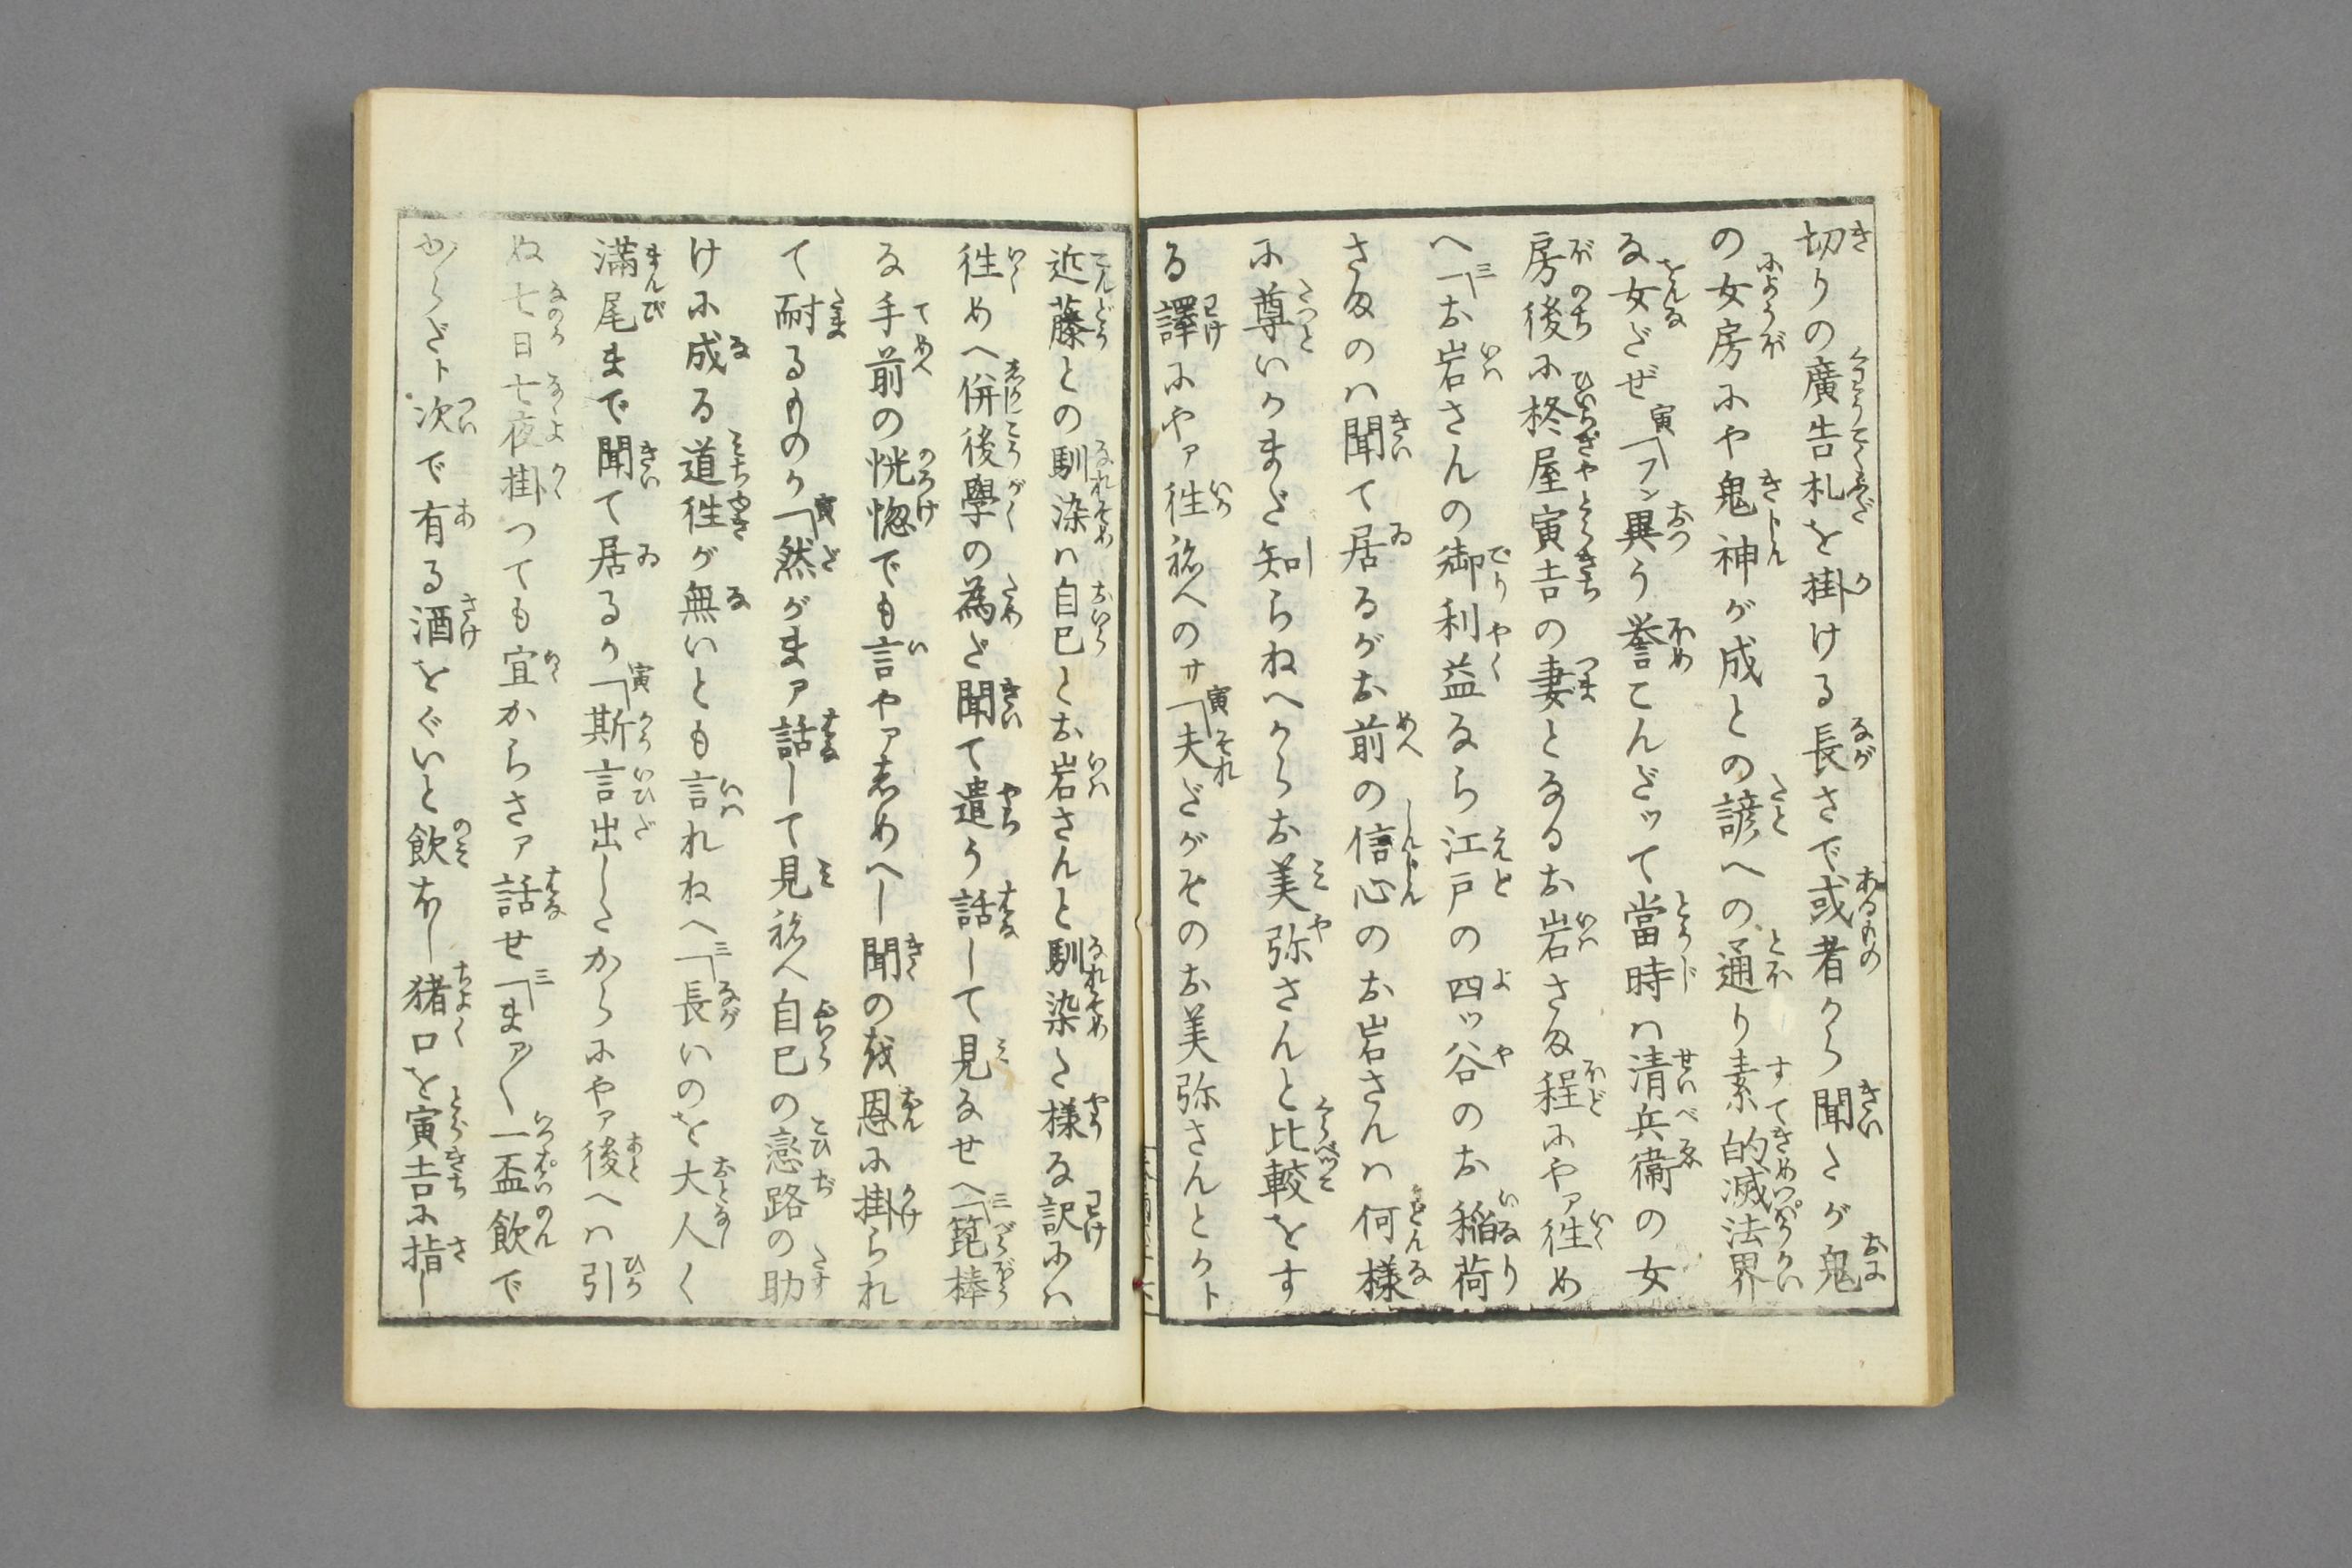 切りの廣告札を掛ける長さで或者から聞たが鬼
の女房にや鬼神が成との諺への通り素的滅法界
な女だぜ寅「フン異う誉こんだッて當時ハ清兵衞の女
房後に柊屋寅吉の妻となるお岩さま程にやァ徃め
へ三「お岩さんの御利益なら江戸の四ッ谷のお稲荷
さまのハ聞て居るがお前の信心のお岩さんハ何様
に尊いかまだ知らねへからお美弥さんと比較をす
る譯にやァ徃ねへのサ寅「夫だがそのお美弥さんとかト
近藤との馴染ハ自己とお岩さんと馴染た様な訳にハ
徃めへ併後學の為だ聞て遣う話して見なせへ三「箆棒
な手前の恍惚でも言やァ志めへし聞のを恩に掛られ
て耐るものか寅「然がまァ話して見ねへ自己の戀路の助
けに成る道徃が無いとも言れねへ三「長いのを大人く
滿尾まで聞て居るか寅「斯言出したからにやァ後へハ引
ぬ七日七夜掛つても宜からさァ話せ三「まァ〳〵一盃飲で
からだト次で有る酒をぐいと飲ほし猪口を寅吉に指し